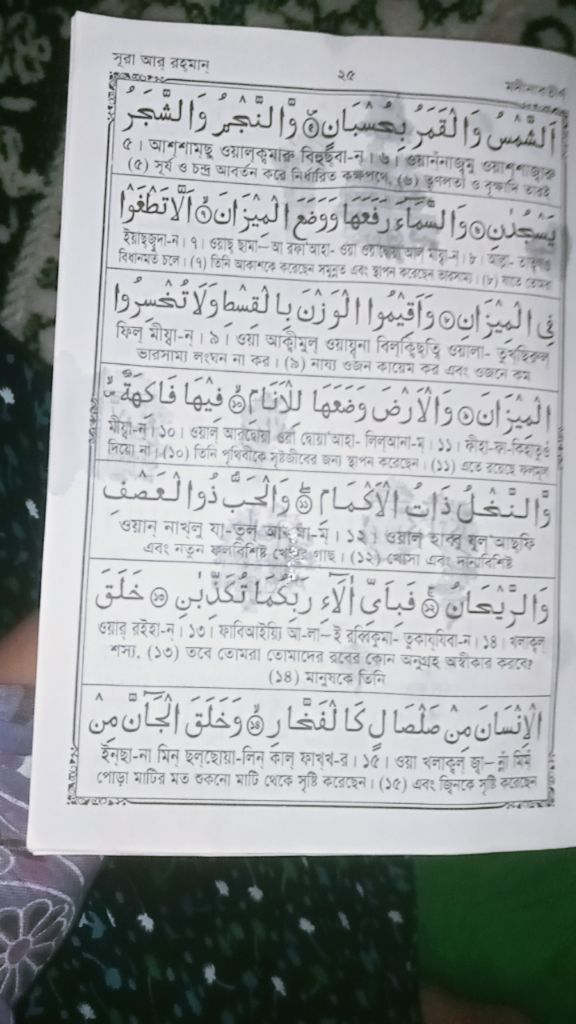 সূরা আর্ রহমান্
২৫
اَلشَّمْسُ وَالْقَمَرُ بِحُسْبَانٍ ۝٥ وَّالنَّجْمُ وَالشَّجَرُ
৫। আশ্শামছু ওয়াল্ক্বামারু বিহুছ্বা-ন্। ৬। ওয়ান্নাজ্মু ওয়াশ্শাজ্বারু
(৫) সূর্য ও চন্দ্র আবর্তন করে নির্ধারিত কক্ষপথে, (৬) তৃণলতা ও বৃক্ষাদি তারই
يَسْجُدٰنِ ۝٦ وَالسَّمَآءَ رَفَعَهَا وَوَضَعَ الْمِيْزَانَ ۝٧ اَلَّا تَطْغَوْا
ইয়াছ্জুদা-ন্। ৭। ওয়াছ্ ছামা—আ রফা'আহা- ওয়া ওয়াদ্বোয়া'আল্ মীযা-ন্। ৮। আল্লা-
বিধানমত চলে। (৭) তিনি আকাশকে করেছেন সমুন্নত এবং স্থাপন করেছেন ভারসাম্য। (৮) যাতে তোমরা
فِى الْمِيْزَانِ ۝٨ وَاَقِيْمُوا الْوَزْنَ بِالْقِسْطِ وَلَا تُخْسِرُوا
ফিল্ মীযা-ন্। ৯। ওয়া আক্বীমুল্ ওয়ায্না বিল্ক্বিছ্ত্বি ওয়ালা- তুখ্ছিরুল্
ভারসাম্য লংঘন না কর। (৯) ন্যায্য ওজন কায়েম কর এবং ওজনে কম
الْمِيْزَانَ ۝٩ وَالْاَرْضَ وَضَعَهَا لِلْاَنَامِ ۝١٠ فِيْهَا فَاكِهَةٌ
মীযা-ন্। ১০। ওয়াল্ আর্দ্বোয়া ওয়া দ্বোয়া'আহা- লিল্আনা-ম্। ১১। ফীহা- ফা-কিহাতুঁও
দিয়ো না। (১০) তিনি পৃথিবীকে সৃষ্টজীবের জন্য স্থাপন করেছেন। (১১) এতে রয়েছে ফলমূল
وَّالنَّخْلُ ذَاتُ الْاَكْمَامِ ۝١١ وَالْحَبُّ ذُو الْعَصْفِ
ওয়ান্ নাখ্লু যা-তুল্ আক্মা-ম্। ১২। ওয়াল্ হাব্বু যুল্ 'আছ্ফি
এবং নতুন ফলবিশিষ্ট খেজুর গাছ। (১২) খোসা এবং দানাবিশিষ্ট
وَالرَّيْحَانُ ۝١٢ فَبِاَىِّ اٰلَآءِ رَبِّكُمَا تُكَذِّبٰنِ ۝١٣ خَلَقَ
ওয়ার্ রইহা-ন্। ১৩। ফাবিআইয়্যি আ-লা—ই রব্বিকুমা- তুকায্যিবা-ন্। ১৪। খলাক্বল্
শস্য, (১৩) তবে তোমরা তোমাদের রবের কোন অনুগ্রহ অস্বীকার করবে?
(১৪) মানুষকে তিনি
الْاِنْسَانَ مِنْ صَلْصَالٍ كَالْفَخَّارِ ۝١٤ وَخَلَقَ الْجَآنَّ مِنْ
ইন্ছা-না মিন্ ছল্ছোয়া-লিন্ কাল্ ফাখ্খ-র্। ১৫। ওয়া খলাক্বল্ জ্বা—ন্না মিম্
পোড়া মাটির মত শুকনো মাটি থেকে সৃষ্টি করেছেন। (১৫) এবং জ্বিনকে সৃষ্টি করেছেন